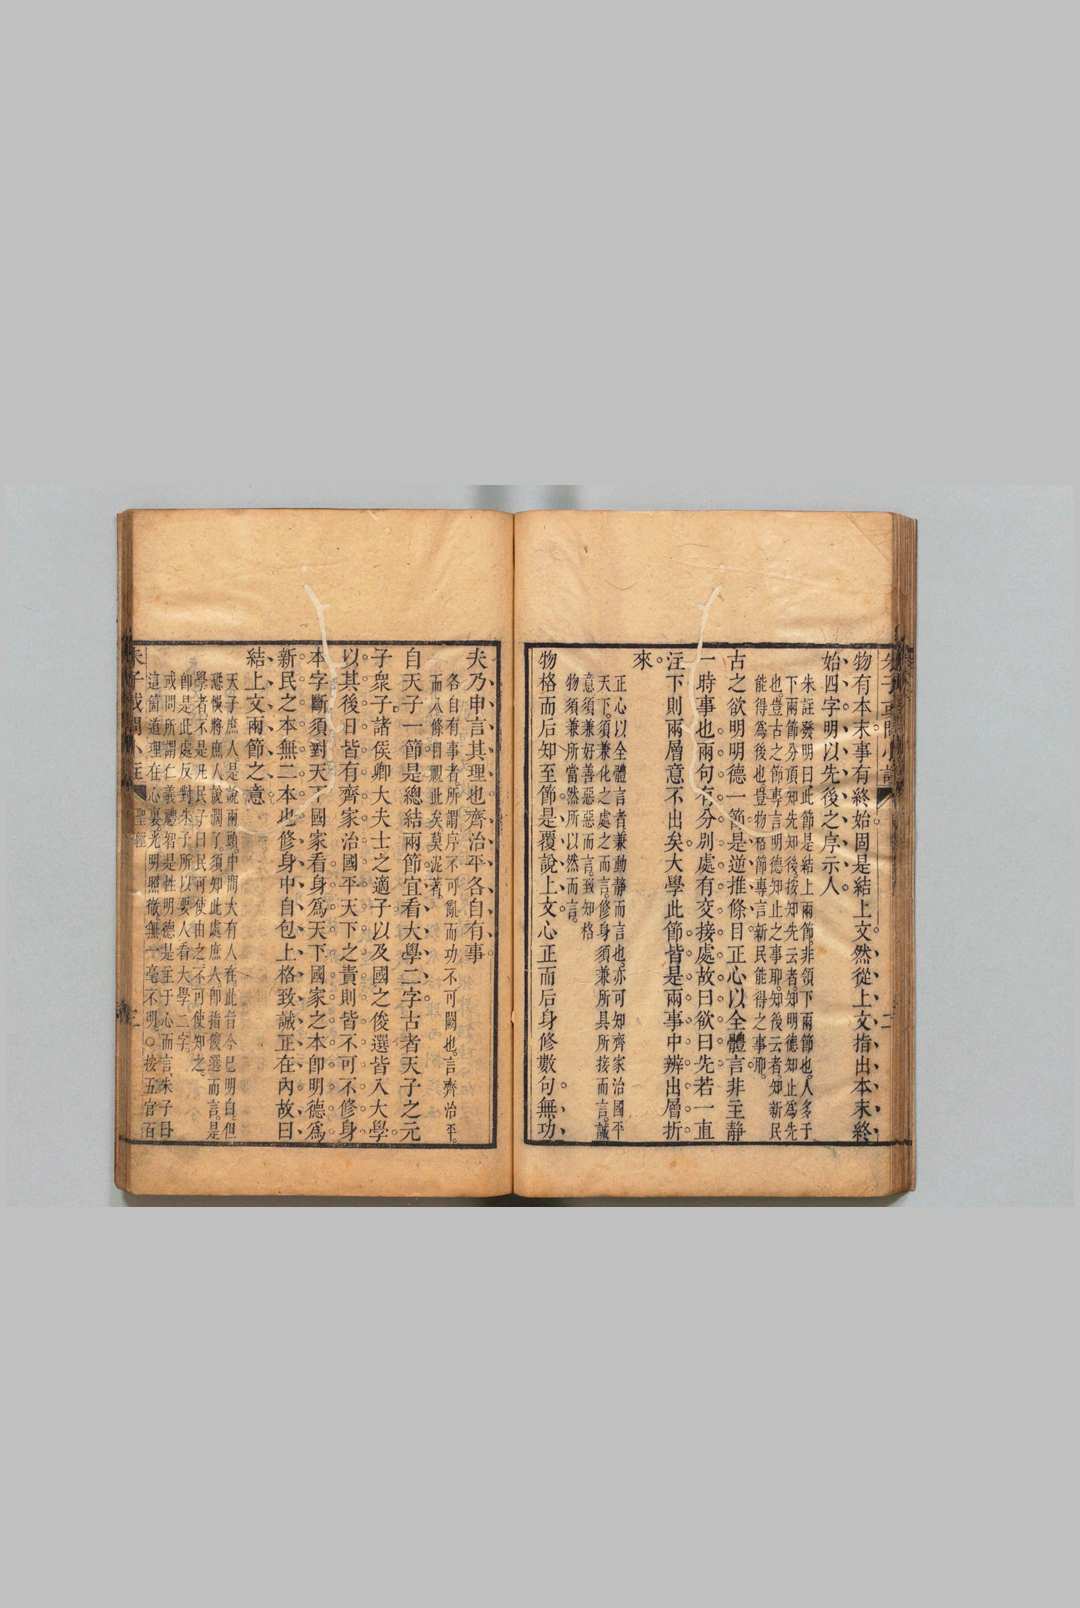 物有本末事有終始固是結上文然從上文指出本末終
始四字明以先後之序示人
朱註發明曰此節是結上兩節非領下兩節也人多于
下兩節分項知先知後按知先云者知明德知止為先
也豈古之節專言明德知止之事耶知後云者知新民
能得為後也豈物格節專言新民能得之事耶
古之欲明明德一節是逆推條目正心以全體言非主靜
一時事也兩句有分別處有交接處故曰欲曰先若一直
注下則兩層意不出矣大學此節皆是兩事中辨出層折
來
正心以全體言者兼動靜而言也亦可知齊家治國平
天下須兼化之處之而言修身須兼所具所接而言誠
意須兼好善惡惡而言致知格
物須兼所當然所以然而言
物格而后知至節是覆說上文心正而后身修數句無功
夫乃申言其理也齊治平各自有事
各自有事者所謂序不可亂而功不可闕也言齊治平
而八條目觀此矣莫泥著
自天子一節是總結兩節宜看大學二字古者天子之元
子衆子諸侯卿大夫士之適子以及國之俊選皆入大學
以其後日皆有齊家治國平天下之責則皆不可不修身
本字斷須對天下國家看身為天下國家之本卽明德為
新民之本無二本也修身中自包上格致誠正在內故曰
結上文兩節之意
天子庶人是說兩頭中間大有人在此旨今已明白但
恐悞將庶人說濶了須知此處庶人卽指俊選而言是
學者不是凡民子曰民可使由之不可使知之
卽是此處反對朱子所以要人看大學二字
或問所謂仁義禮智是性明德是主于心而言朱子曰
這箇道理在心裏光明照徹無一毫不明○按五官百
朱子或問小註 聖經 三